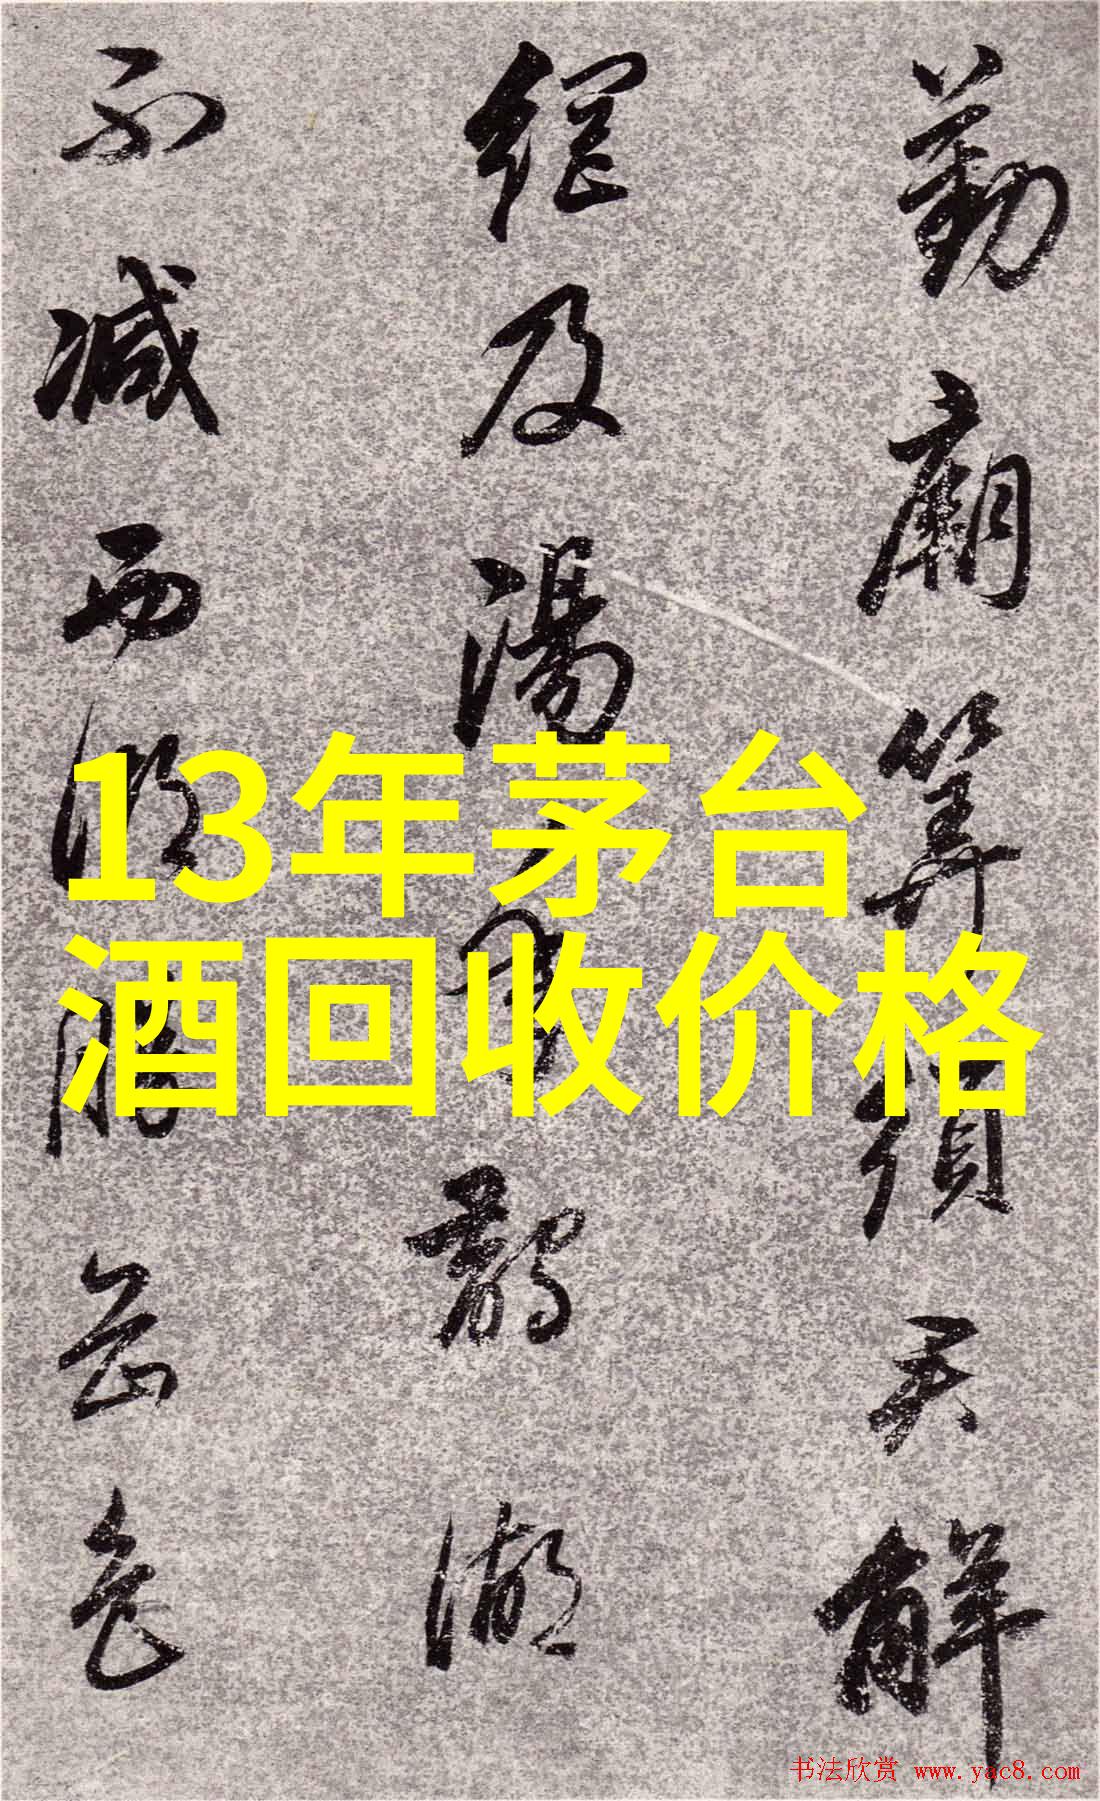 勤廟算天解
網及湯鵲湖
不減西湖勝岳色
13年茅台
酒回收价格
书法欣赏 www.yac8.com